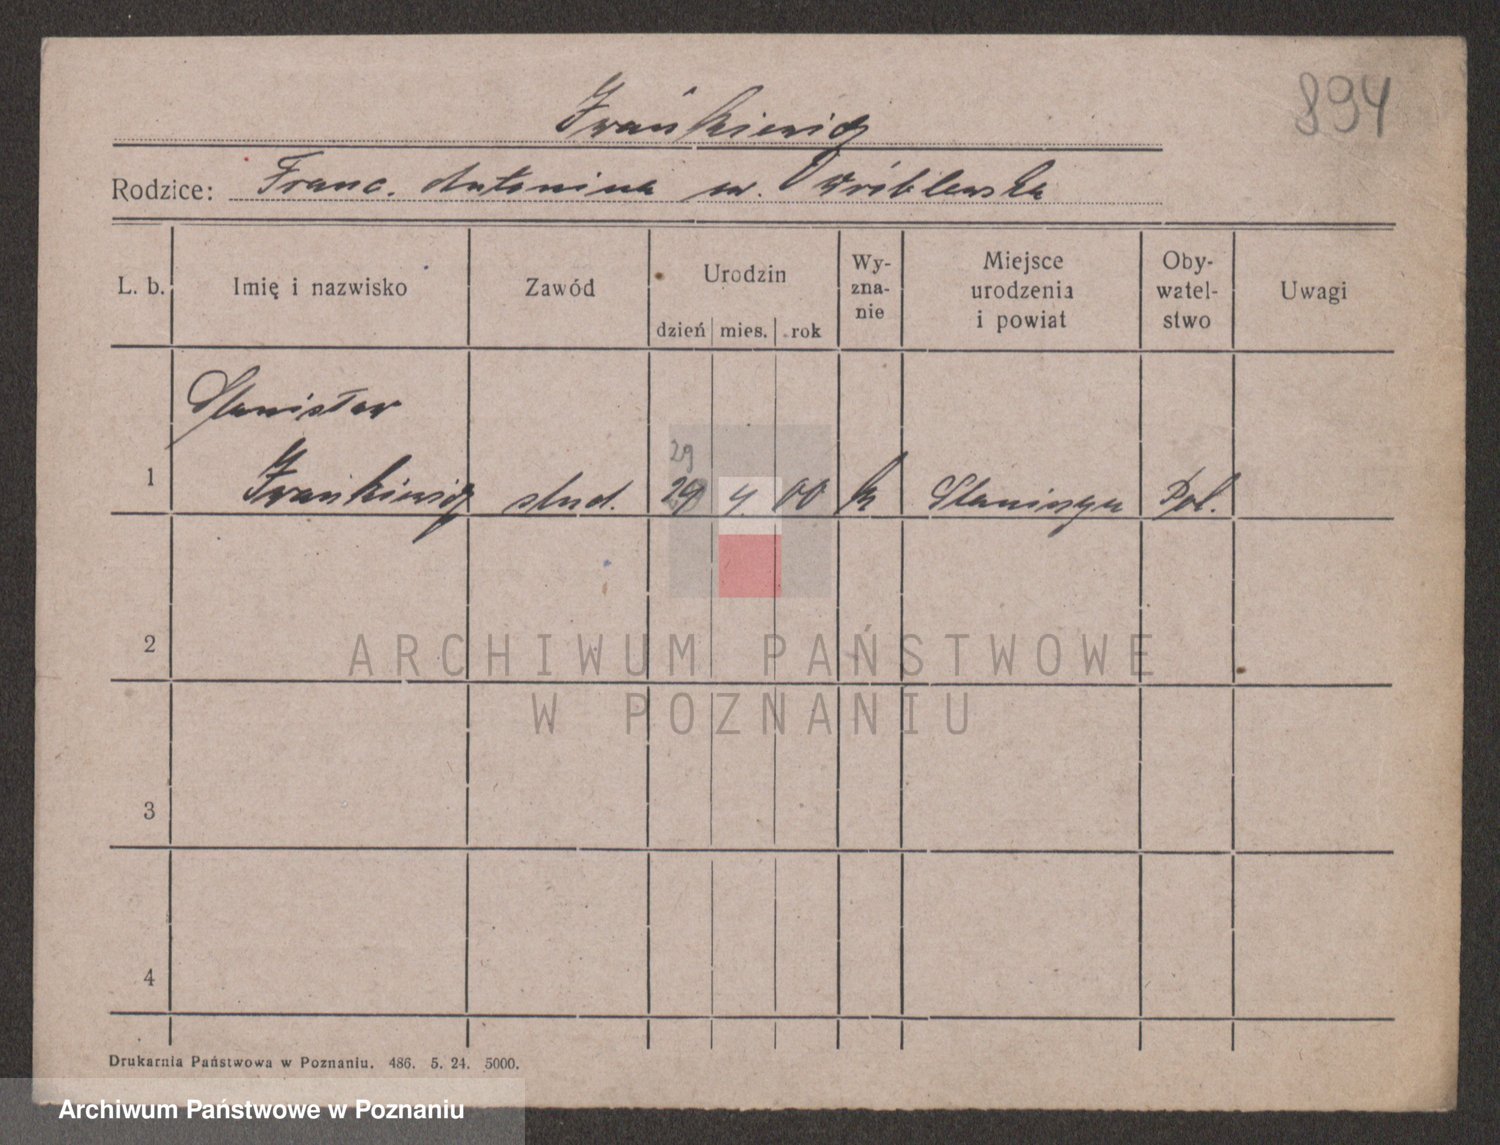 894
Iwańkiewicz
Rodzice: Franc. Antonina z d. Wróblewska
L. b. Imię i nazwisko Zawód Urodzin dzień mies. rok Wy-zna-nie Miejsce urodzenia i powiat Oby-watel-stwo Uwagi
Stanisław
29
1 Iwańkiewicz stud. 29 4. 00 k Pol.
2
ARCHIWUM PAŃSTWOWE
W POZNANIU
3
4
Drukarnia Państwowa w Poznaniu. 486. 5. 24. 5000.
Archiwum Państwowe w Poznaniu